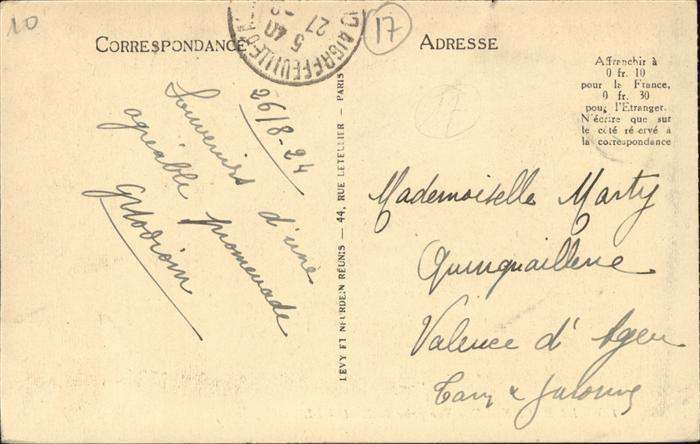 10
17
CORRESPONDANCE
ADRESSE
D'AIGREFEUILLE-D'
5 40
27
Affranchir à
0 fr. 10
pour la France,
0 fr. 30
pour l'Etranger.
N'écrire que sur
le côté réservé à
la correspondance
26/8-24
Souvenirs d'une
agréable promenade
LEVY ET NEURDEIN RÉUNIS — 44, RUE LETELLIER — PARIS
17
Mademoiselle Marty
Quinquaillerie
Valence d'Agen
Tarn & Garonne